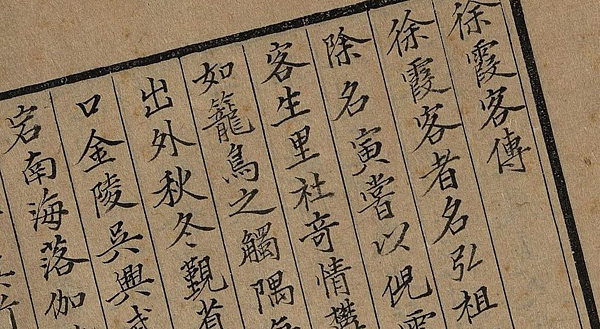 徐霞客傳
徐霞客者名弘祖
除名寅嘗以倪雲
客生里社奇情
如籠鳥之觸隅
出外秋冬覲省
口金陵吳興
宕南海落伽